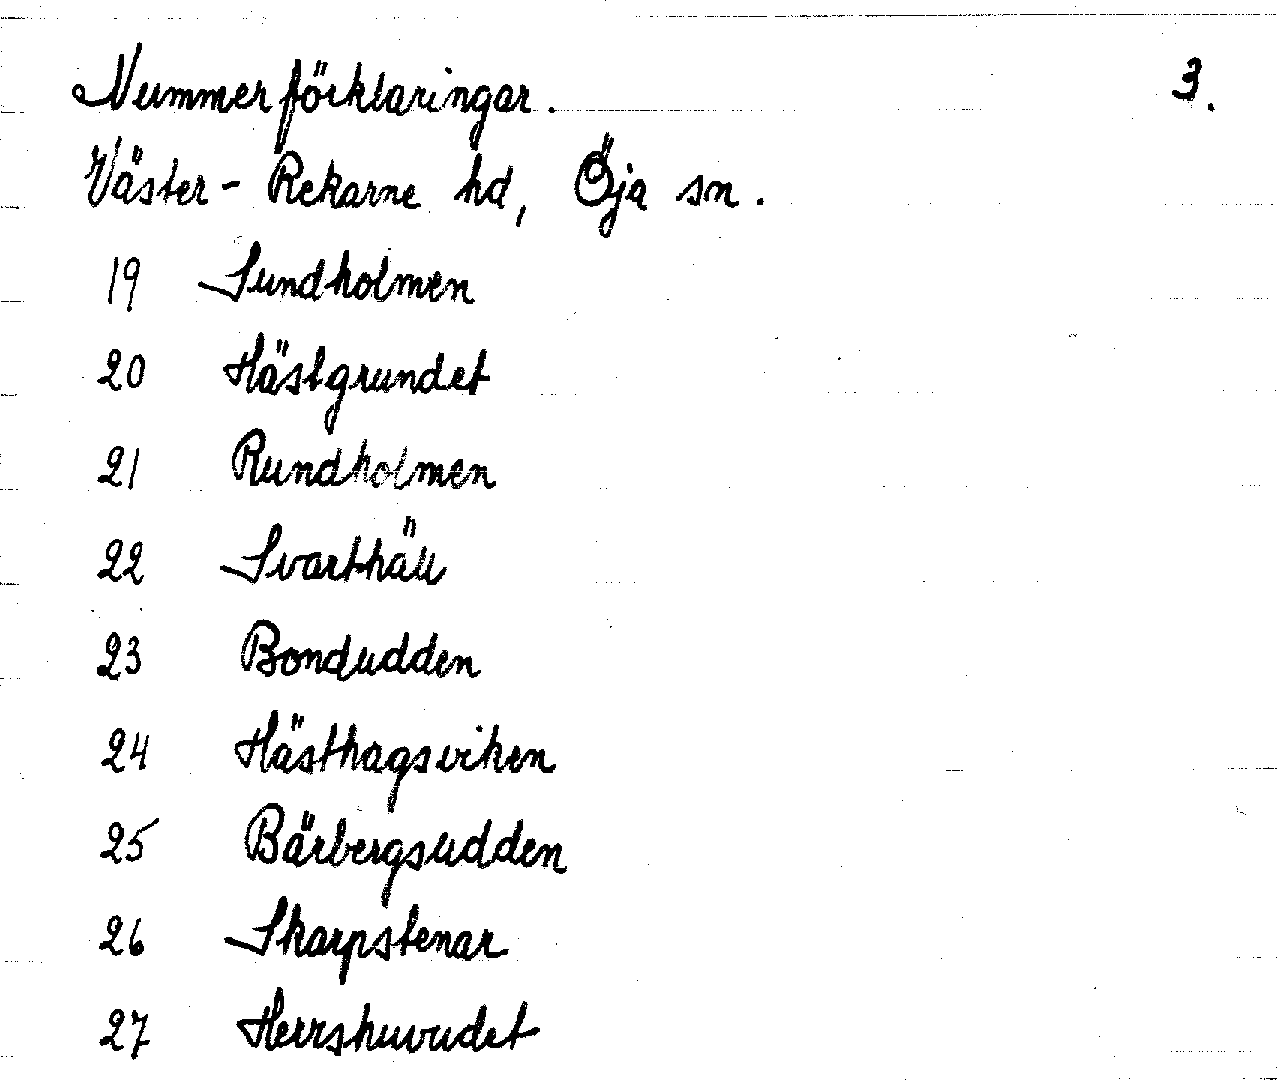 Nummerförklaringar. 3.
Väster-Rekarne hd, Öja sn.
19 Sundholmen
20 Hästgrundet
21 Rundholmen
22 Svarthäll
23 Bondudden
24 Hästhagsviken
25 Bärbergsudden
26 Skarpstenar
27 Herrshuvudet